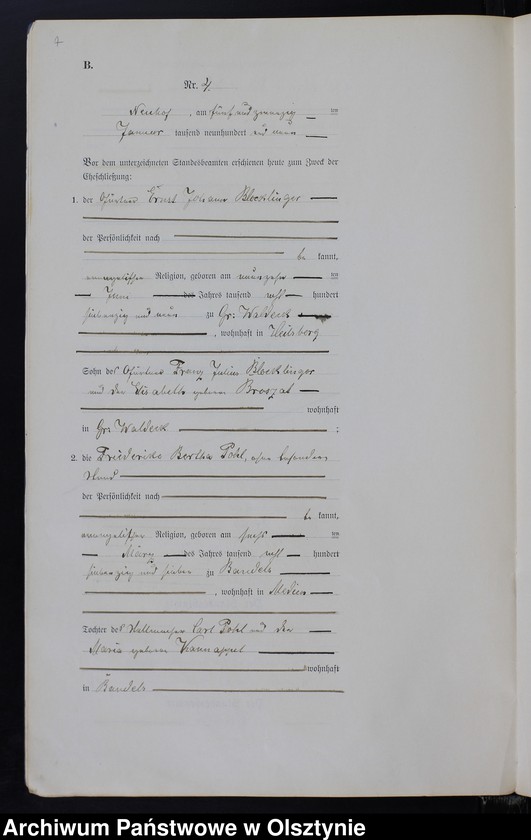 B.
Nr. 4.
Neuhof, am fünf und zwanzig ten
Januar tausend neunhundert und neun
Vor dem unterzeichneten Standesbeamten erschienen heute zum Zweck der
Eheschließung:
1. der Ernst Johann Blocklinger
der Persönlichkeit nach
be kannt,
evangelischer Religion, geboren am neunzehn ten
Juni des Jahres tausend acht hundert
siebenzig und neun zu Gr: Waldeck
, wohnhaft in Heilsberg
Sohn des Franz Julius Blocklinger
und der Elisabeth geborene Broszat
wohnhaft
in Gr: Waldeck ;
2. die Friederike Bertha Pohl, ohne besonderen
Stand
der Persönlichkeit nach
be kannt,
evangelischer Religion, geboren am sechs ten
März des Jahres tausend acht hundert
siebenzig und sieben zu Bandels
, wohnhaft in
Tochter des Carl Pohl und der
Maria geborene Kannappel
wohnhaft
in Bandels
Archiwum Państwowe w Olsztynie